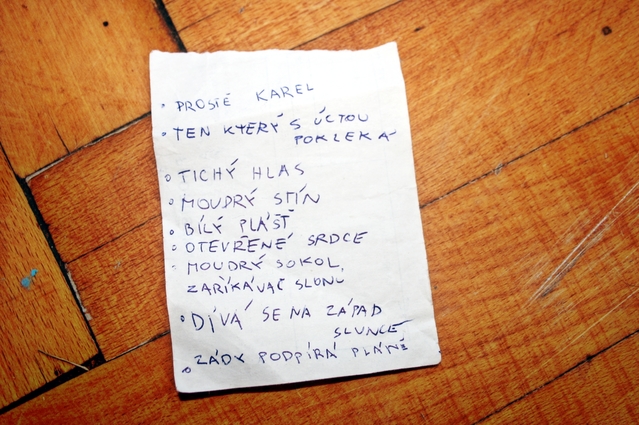 PROSTĚ KAREL
TEN KTERÝ S ÚCTOU
POKLEKÁ
TICHÝ HLAS
MOUDRÝ STÍN
BÍLÝ PLÁŠŤ
OTEVŘENÉ SRDCE
MOUDRÝ SOKOL,
ZAŘÍKÁVAČ SLONŮ
DÍVÁ SE NA ZÁPAD
SLUNCE
ZÁDY PODPÍRÁ PLÁNĚ